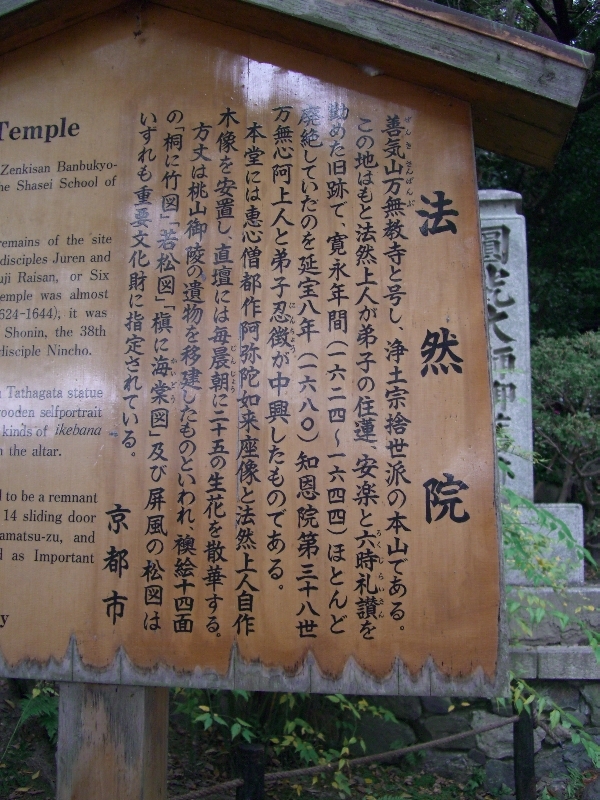 法然院
善気山万無教寺と号し、浄土宗捨世派の本山である。
この地はもと法然上人が弟子の住蓮、安楽と六時礼讃を
勤めた旧跡で、寛永年間（一六二四〜一六四四）ほとんど
廃絶していたのを延宝八年（一六八〇）知恩院第三十八世
万無心阿上人と弟子忍徴が中興したものである。
本堂には恵心僧都作阿弥陀如来座像と法然上人自作
木像を安置し、直壇には毎晨朝に二十五の生花を散華する。
方丈は桃山御陵の遺物を移建したものといわれ、襖絵十四面
の「桐に竹図」「若松図」「槇に海棠図」及び屏風の松図は
いずれも重要文化財に指定されている。
京都市
Temple
Zenkisan Banbukyo-
he Shasei School of
remains of the site
disciples Juren and
uji Raisan, or Six
temple was almost
624-1644), it was
Shonin, the 38th
disciple Nincho.
Tathagata statue
ooden selfportrait
kinds of ikebana
n the altar.
d to be a remnant
14 sliding door
amatsu-zu, and
d as Important
y
圓光大師御